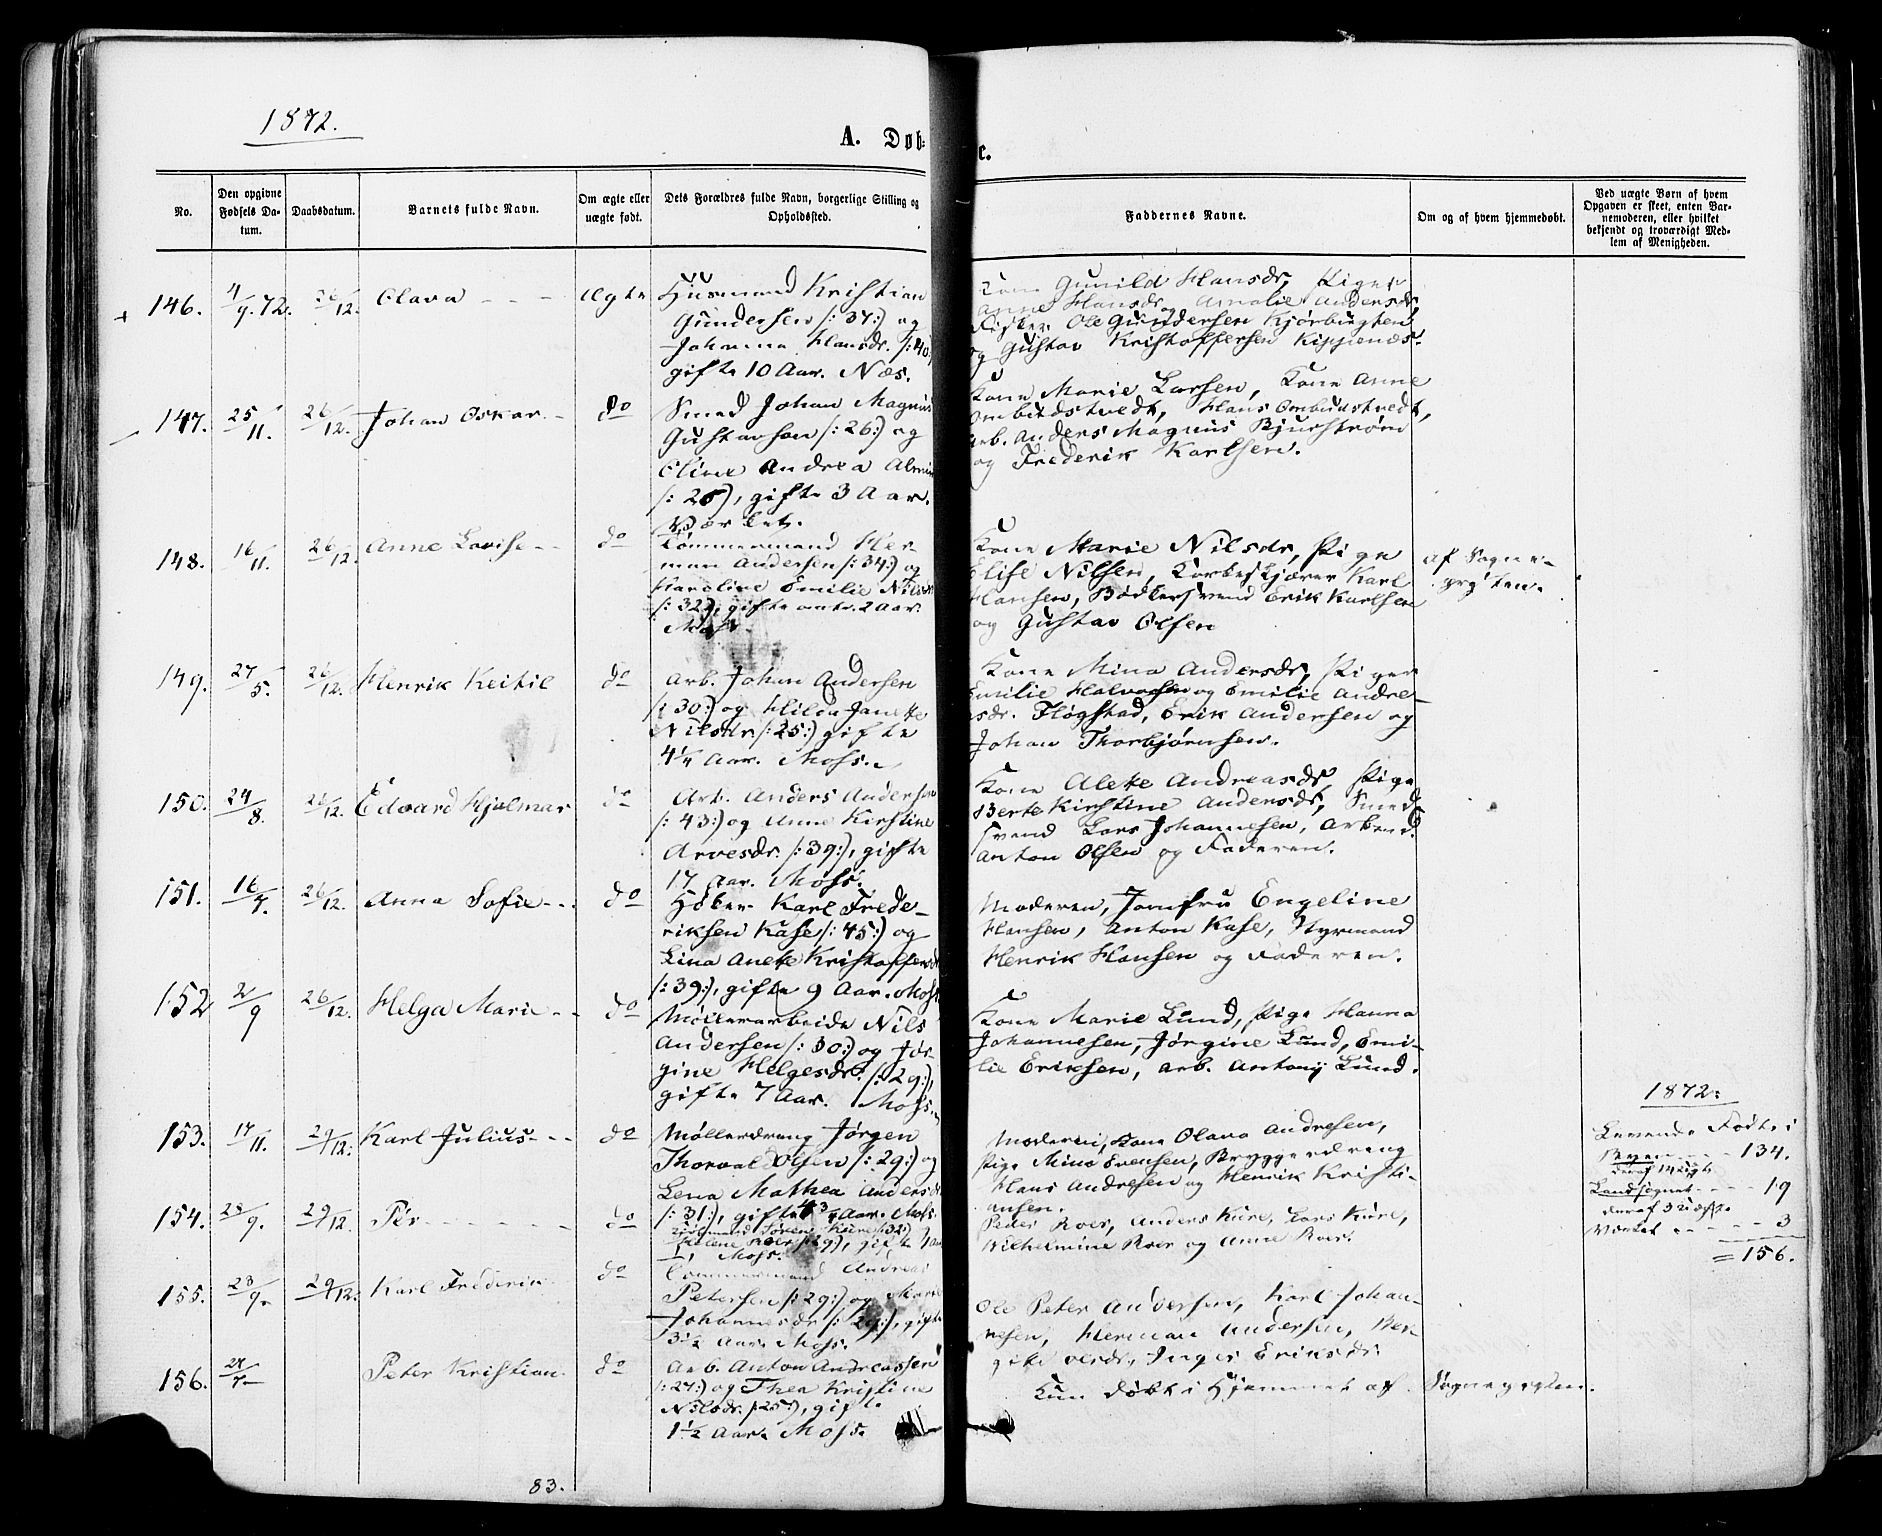 1872.
A. Døb-
e.
No.
Den opgivne Fødsels Datum.
Daabsdatum.
Barnets fulde Navn.
Om ægte eller uægte født.
Dets Forældres fulde Navn, borgerlige Stilling og Opholdssted.
Faddernes Navne.
Om og af hvem hjemmedøbt.
Ved uægte Børn af hvem
Opgaven er skeet, enten Bar-
nemoderen, eller hvilket
bekjendt og troværdigt Med-
lem af Menigheden.
146. 4/9.72. 26/12. Olava - - - ægte
Husmand Kristian
Gundersen /:37:) og
Johanna Hansdr. /:40
gifte 10 Aar. Næs.
Kone Gunild Hansdr, Piger
Anne Hansdr og Amalie Andersdr,
Fisker Ole Gundersen Kjørbugten
og Gustav Kristoffersen Kippenæs.
147. 25/11. 26/12. Johan Oskar. - do
Smed Johan Magnus
Gustavson /:26:) og
Oline Andrea
/:26), gifte 3 Aar.
Værket.
Kone Marie Larsen, Kone Anne
Ombudstvedt, Hans Ombudstvedt,
Arb. Anders Magnus Bjurstrøm
og Frederik Karlsen.
148. 16/11. 26/12. Anne Lovise - - do
Tømmermand Her-
man Andersen /:34:) og
Karoline Emilie Nilsdr
/:32), gifte 2 Aar.
Moss.
Kone Marie Nilsdr, Pige
Elise Nilsen, Karl
Hansen, Bødkersvend Erik Karlsen
og Gustav Olsen
af Sogne-
præsten.
149. 27/5. 26/12. Henrik Keitil do
Arb. Johan Andersen
/:30:) og Hilda Janette
Nilsdr /:25:) gifte
4 1/4 Aar. Moss.
Kone Mina Andersdr, Piger
Emilie Halvorsen og Emilie Andre-
sdr. Fløgstad, Erik Andersen og
Johan Thorbjørnsen.
150. 24/8. 26/12. Edvard Hjalmar do
Arb. Anders Andersen
/:43:) og Anne Kirstine
Arvesdr. /:39:), gifte
17 Aar. Moss.
Kone Alette Andreasdr, Pige
Berte Kirstine Andersdr, Smed-
svend Lars Johannesen, Arbeid.
Anton Olsen og Faderen.
151. 16/7. 26/12. Anna Sofie - - do
Høker Karl Frede-
riksen Kase /:45:) og
Lina Anette Kristoffersdr
/:39:), gifte 9 Aar. Moss
Moderen, Jomfru Engeline
Hansen, Anton Kase, Styrmand
Henrik Hansen og Faderen.
152 2/9 26/12. Helga Marie - - do
Møllerarbeide Nils
Andersen /:30:) og Jør-
gine Helgesdr. /:29:),
gifte 7 Aar. Moss.
Kone Marie Lund, Pige Hanna
Johannesen, Jørgine Lund, Emi-
lie Eriksen, Arb. Antony Lund.
153. 17/11. 29/12. Karl Julius - - do
Møllerdreng Jørgen
Thorvald Olsen /:29:) og
Lena Mathea Andersdr
/:31:), gifte 4 3/4 Aar. Moss.
Moderen, Kone Olava Andresen,
Pige Mina Evensen, Bryggerdreng
Hans Andresen og Henrik Kristi-
ansen.
154. 28/9. 29/12. Per - - - - - do
Søren Kure /:32:) og
Helene Roer /:29), gifte
Moss.
Peder Roer, Anders Kure, Lars Kure,
Wilhelmine Roer og Anne Roer.
155. 23/9. 29/12. Karl Frederik do
Tømmermand Andreas
Petersen /:29:) og Marie
Johannesdr /:29:), gifte
3 1/2 Aar. Moss.
Ole Peter Andersen, Karl Johan-
nesen, Herman Andersen, Ber-
gitte Inger Eriksdr.
156. 28/7. Peter Kristian do
Arb. Anton Andreassen
/:27:) og Thea Kristine
Nilsdr. /:25:), gifte
1 1/2 Aar. Moss.
Kun døbt i Hjemmet af Sognepresten.
1872:
Levende Fødte i
Byen - - - 134.
deraf 14 uægte
Landsognet - - - - 19
deraf 3 uægte.
Værket - - - - - 3
= 156.
83.